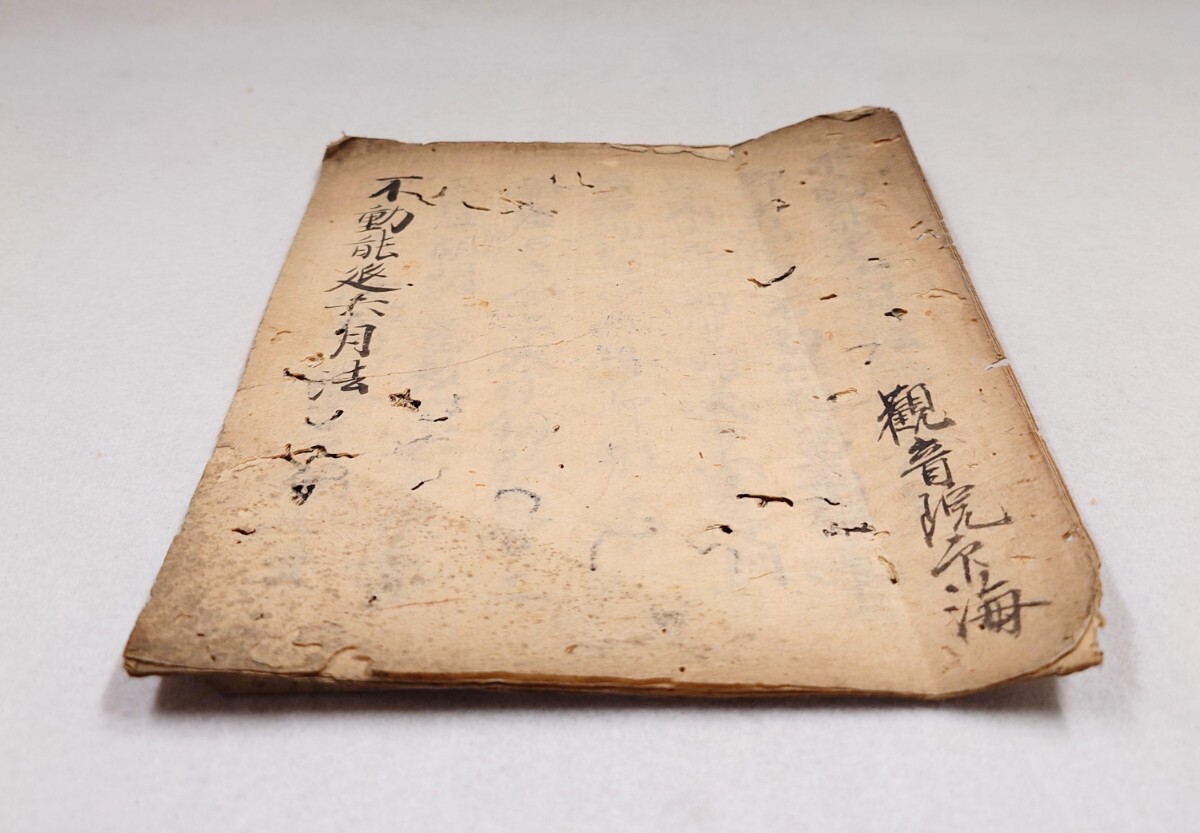 觀音院海
不動能延六月法